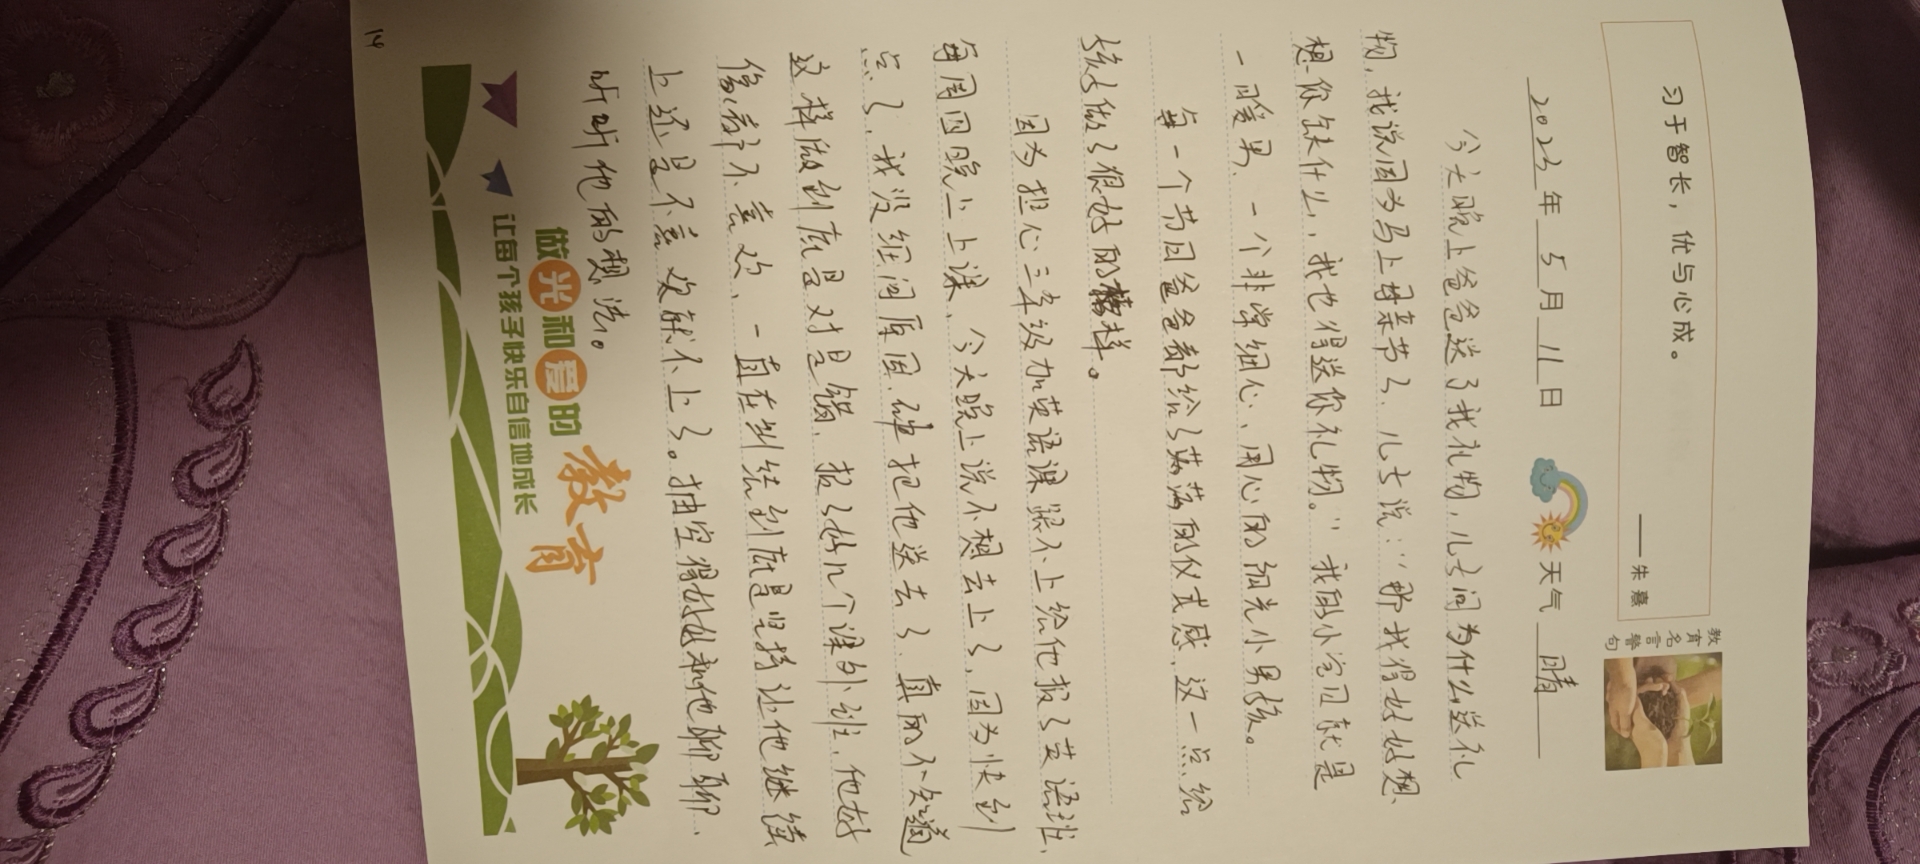 习于智长，优与心成。
——朱熹
教育名言警句
2023年5月11日 天气 晴
今天晚上爸爸送了我礼物，儿子问为什么送礼
物，我说因为马上母亲节了，儿子说：“那我得好好想
想你缺什么，我也得送你礼物。”我的小宝贝就是
一暖男、一个非常细心、用心的阳光小男孩。
每一个节日爸爸都给了满满的仪式感，这一点给
孩子做了很好的榜样。
因为担心三年级加英语课跟不上给他报了英语班，
每周四晚上上课，今天晚上说不想去上了，因为快到
点了，我没细问原因，硬把他送去了，真的不知道
这样做到底是对是错，报了好几个课外班，他好
像都不喜欢，一直在纠结到底是坚持让他继续
上还是不喜欢就不上了。抽空得好好和他聊聊，
听听他的想法。
做光和爱的教育
让每个孩子快乐自信地成长
14